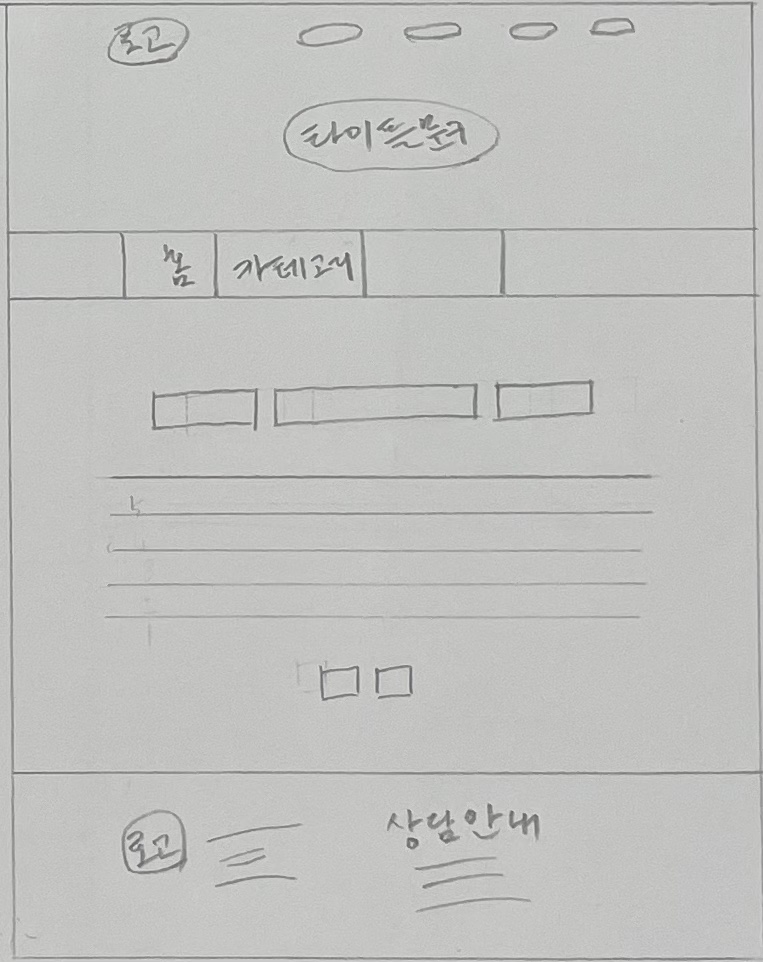 로고
타이틀문구
홈
카테고리
로고
상담안내